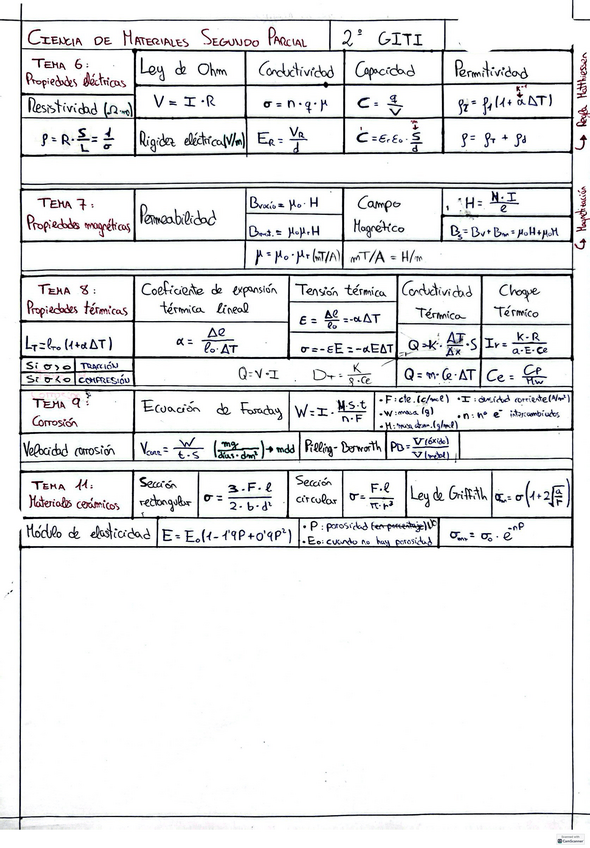 CIENCIA DE MATERIALES SEGUNDO PARCIAL
2º GITI
TEMA 6:
Propiedades eléctricas
Ley de Ohm
Conductividad
Capacidad
Permitividad
Resistividad (Ω·m)
V = I · R
σ = n · q · μ
C = q/V
ρT = ρ1 (1 + α ΔT)
ρ = R · S/L = 1/σ
Rigidez eléctrica (V/m)
ER = VR/d
C = εr ε0 · S/d
ρ = ρT + ρd
Regla Matthiessen
TEMA 7:
Propiedades magnéticas
Permeabilidad
Bvacío = μ0 · H
Bmat. = μ0 μr H
μ = μ0 · μr (mT/A)
Campo
Magnético
H = N · I / l
Bs = Bv + Bm = μ0H + μ0M
mT/A = H/m
Magnetización
TEMA 8:
Propiedades térmicas
Coeficiente de expansión
térmica lineal
Tensión térmica
Conductividad
Térmica
Choque
Térmico
LT = lT0 (1 + α ΔT)
α = Δl / l0 · ΔT
ε = Δl/l0 = -α ΔT
σ = -εE = -αEΔT
Q = K · ΔT/Δx · S
Ir = K · R / α · E · Ce
Si σ > 0 TRACCIÓN
Si σ < 0 COMPRESIÓN
Q = V · I
DT = K / ρ · Ce
Q = m · Ce · ΔT
Ce = Cp/Mw
TEMA 9:
Corrosión
Ecuación de Faraday
W = I · M · S · t / n · F
· F: cte. (c/mol)
· W: masa (g)
· M: masa atom. (g/mol)
· I: densidad corriente (A/m²)
· n: nº e⁻ intercambiados
Velocidad corrosión
Vcorr = W / t · S (mg / días · dm²) → mdd
Pilling-Bedworth
PB = V(óxido) / V(metal)
TEMA 11:
Materiales cerámicos
Sección
rectangular
σ = 3 · F · l / 2 · b · d²
Sección
circular
σ = F · l / π · r³
Ley de Griffith
σm = σ (1 + 2√(a/r))
Módulo de elasticidad
E = E0 (1 - 1'9P + 0'9P²)
· P: porosidad
· E0: cuando no hay porosidad
σmr = σ0 · e^-nP
Scanned with
CamScanner